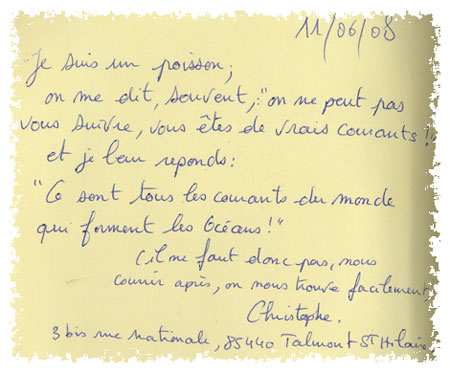 11/06/08
Je suis un poisson,
on me dit, souvent, : "on ne peut pas
vous suivre, vous êtes de vrais courants !
et je leur reponds :
"Ce sont tous les courants du monde
qui forment les Océans !"
il ne faut donc pas, nous
courir après, on nous trouve facilement
Christophe.
3 bis rue Nationale, 85440 Talmont St Hilaire